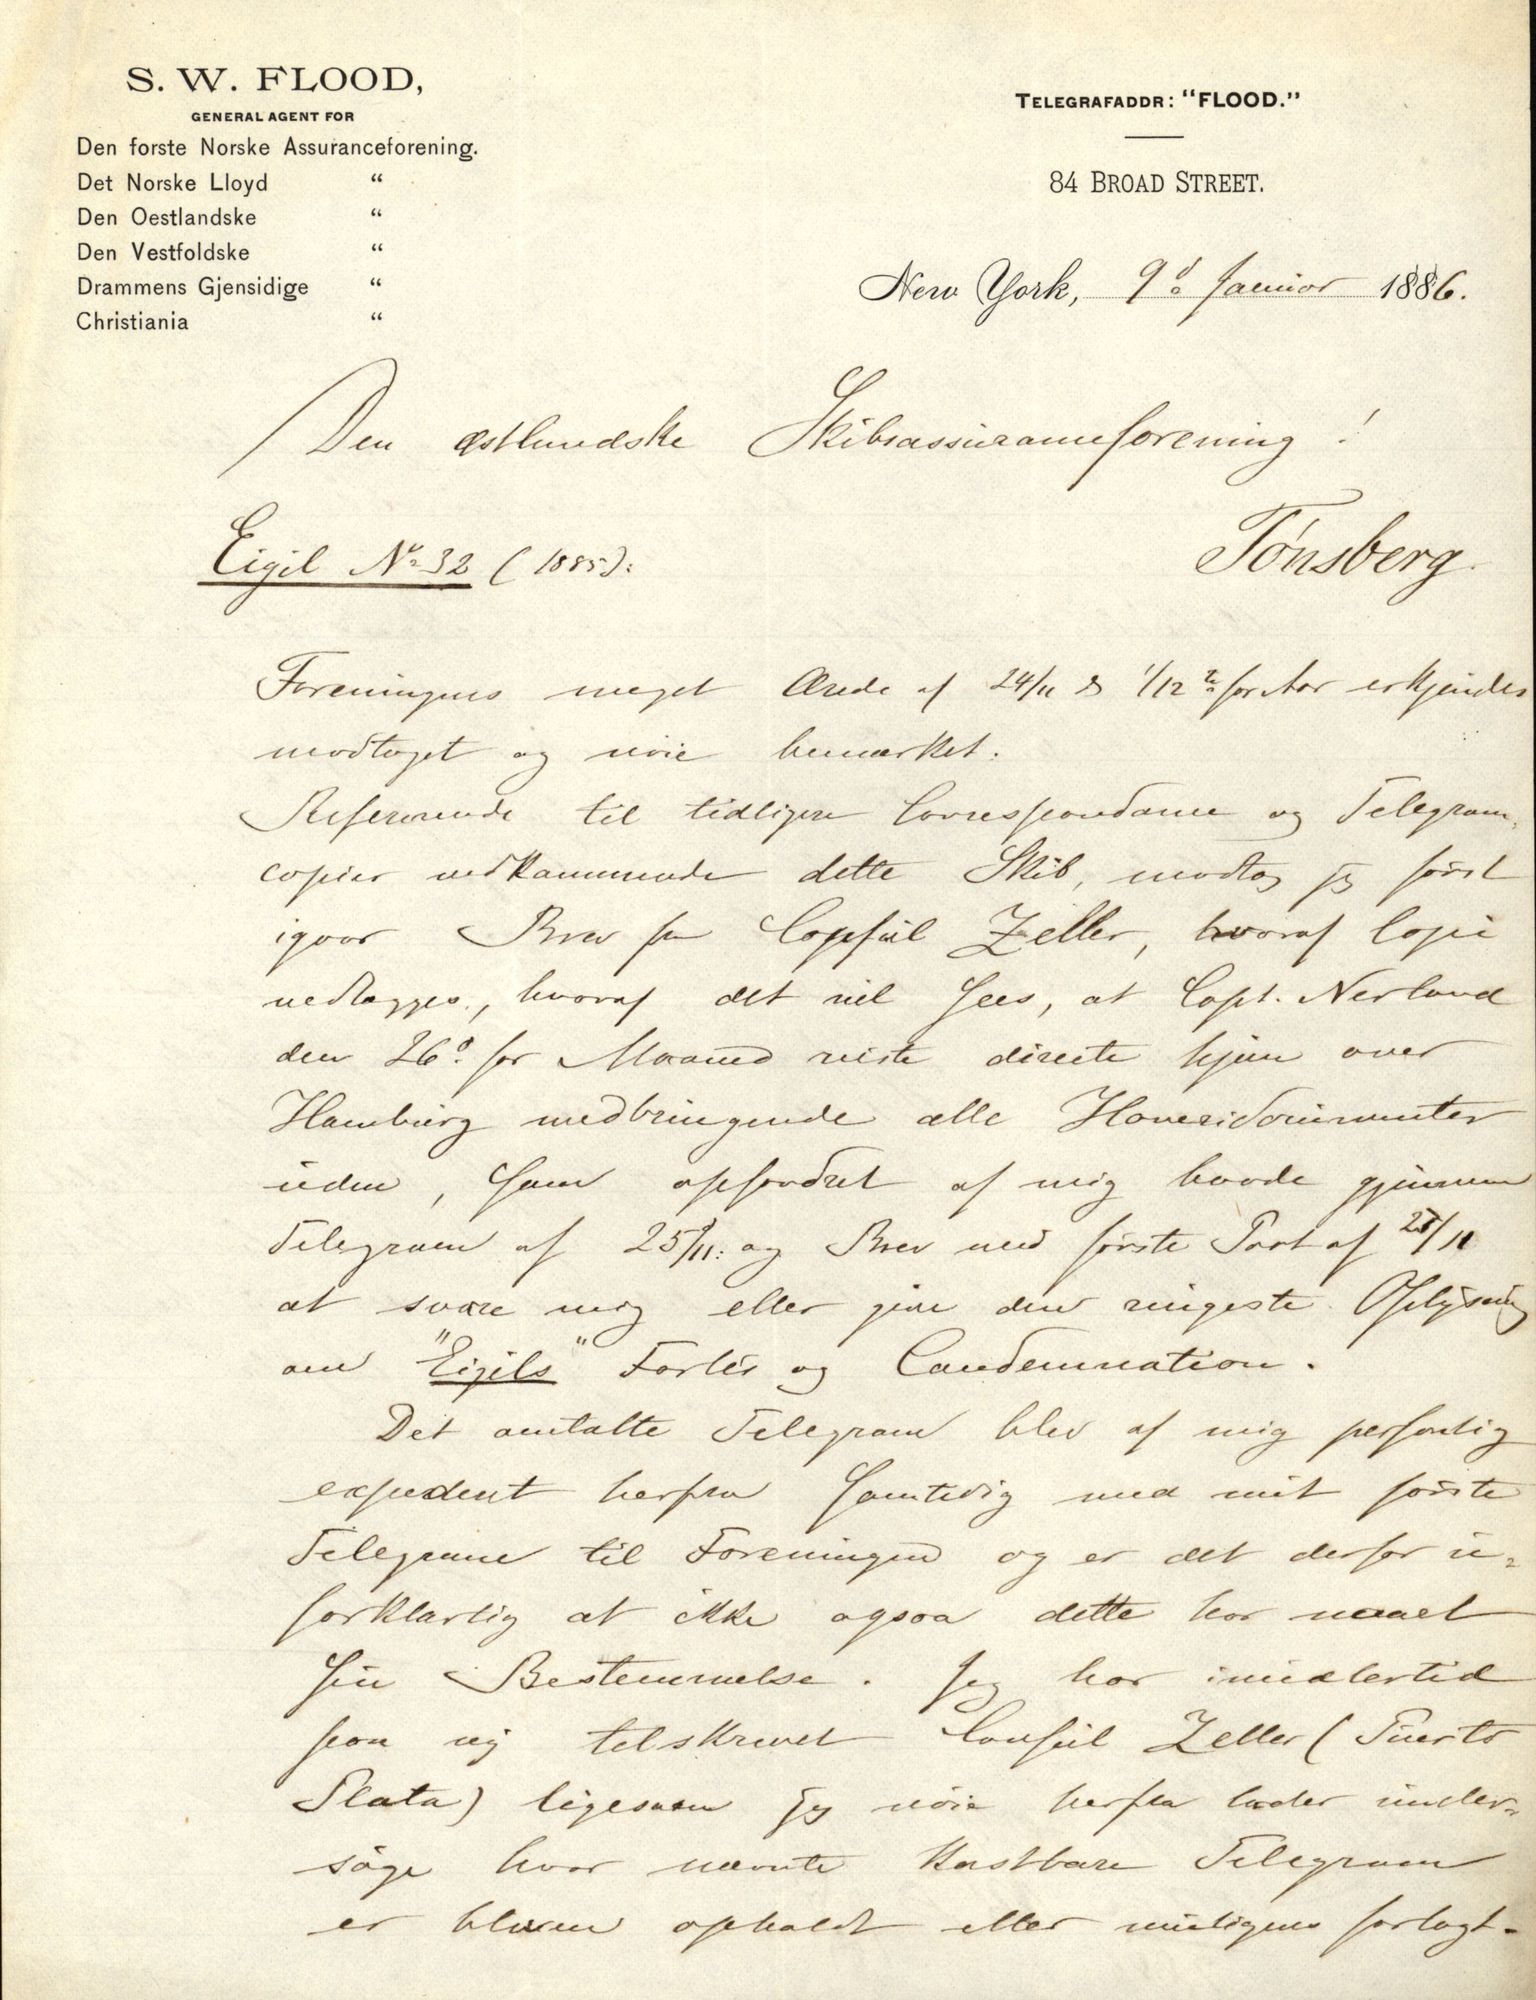 S. W. FLOOD,
GENERAL AGENT FOR
Den forste Norske Assuranceforening.
Det Norske Lloyd "
Den Oestlandske "
Den Vestfoldske "
Drammens Gjensidige "
Christiania "
TELEGRAFADDR: "FLOOD."
84 BROAD STREET.
New York, 9d Januar 1886.
Den østlandske Skibsassuranceforening!
Tønsberg.
Eigil No 32 (1885):
Foreningens meget Ærede af 24/11 & 1/12 for Aar erkjendes
modtaget og nöie bemærket.
Refererende til tidligere Correspondance og Telegram-
copier vedkommende dette Skib, modtog jeg först
igaar Brev fra Consul Zeller, hvoraf Copie
vedlægges, hvoraf det vil sees, at Capt. Nerland
den 26d for Maaned reiste directe hjem over
Hamburg medbringende alle Havaridocumenter
uden, som opfordret af mig baade gjennem
Telegram af 25/11: og Brev med förste Post af 25/11
at svare mig eller give den ringeste Oplysning
om "Eigils" Forlis og Condemnation.
Det omtalte Telegram blev af mig personlig
expederet herfra samtidig med mit förste
Telegram til Foreningen og er det derfor u-
forklarlig at ikke ogsaa dette har naaet
sin Bestemmelse. Jeg har imidlertid
paa ny tilskrevet Consul Zeller (Puerto
Plata) ligesom jeg nöie herfra lader under-
söge hvor nævnte kostbare Telegram
er bleven opholdt eller muligens forlagt.